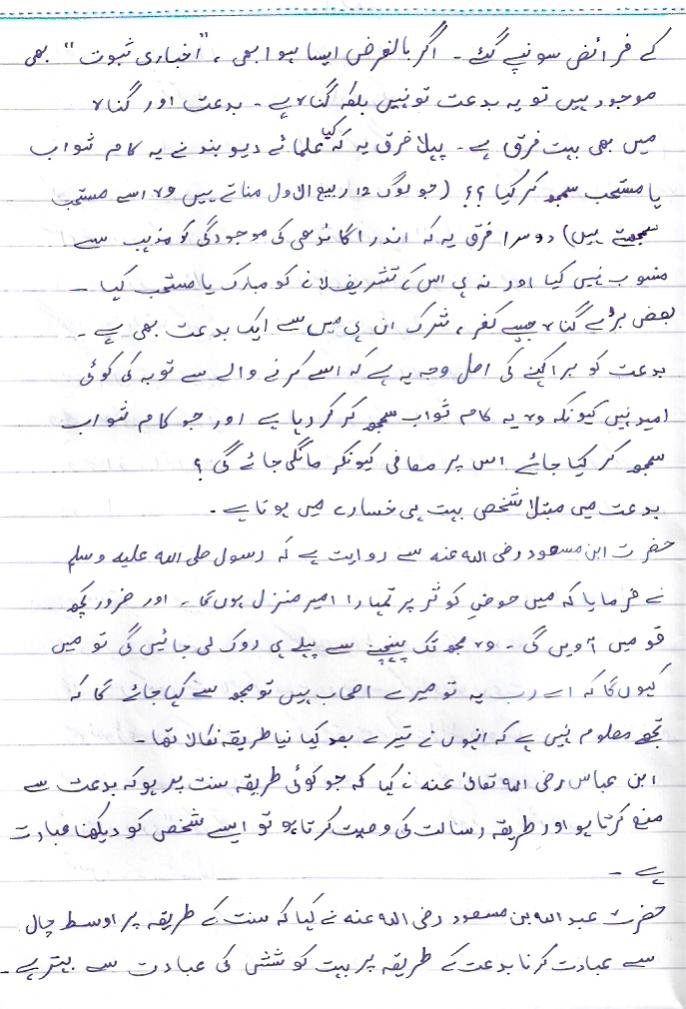 کے فرائض سونپے گئے ۔ اگر بالفرض ایسا ہوا بھی ، "اخباری ثبوت" بھی
موجود ہیں تو یہ بدعت تو نہیں بلکہ گناہ ہے ۔ بدعت اور گناہ
میں بھی بہت فرق ہے ۔ پہلا فرق یہ کہ کیا علمائے دیوبند نے یہ کام ثواب
یا مستحب سمجھ کر کیا ؟؟ (جو لوگ 12 ربیع الاول مناتے ہیں وہ اسے مستحب
سمجھتے ہیں) دوسرا فرق یہ کہ اندرا گاندھی کی موجودگی کو مذہب سے
منسوب نہیں کیا اور نہ ہی اس کے تشریف لانے کو مبارک یا مستحب کہا ۔
بعض بڑے گناہ جیسے کفر ، شرک ان ہی میں سے ایک بدعت بھی ہے ۔
بدعت کو برا کہنے کی اصل وجہ یہ ہے کہ اسے کرنے والے سے توبہ کی کوئی
امید نہیں کیونکہ وہ یہ کام ثواب سمجھ کر کر رہا ہے اور جو کام ثواب
سمجھ کر کیا جائے اس پر معافی کیونکر مانگی جائے گی ؟
بدعت میں مبتلا شخص بہت ہی خسارے میں ہوتا ہے ۔
حضرت ابن مسعود رضی اللہ عنہ سے روایت ہے کہ رسول صلی اللہ علیہ وسلم
نے فرمایا کہ میں حوض کوثر پر تمہارا امیر منزل ہوں گا ۔ اور ضرور کچھ
قومیں آویں گی ۔ وہ مجھ تک پہنچنے سے پہلے ہی روک لی جائیں گی تو میں
کہوں گا کہ اے رب یہ تو میرے اصحاب ہیں تو مجھ سے کہا جائے گا کہ
تجھے معلوم نہیں ہے کہ انہوں نے تیرے بعد کیا نیا طریقہ نکالا تھا ۔
ابن عباس رضی اللہ تعالیٰ عنہ نے کہا کہ جو کوئی طریقہ سنت پر ہو کہ بدعت سے
منع کرتا ہو اور طریقہ رسالت کی وصیت کرتا ہو تو ایسے شخص کو دیکھنا عبادت
ہے ۔
حضرت عبد اللہ بن مسعود رضی اللہ عنہ نے کہا کہ سنت کے طریقہ پر اوسط چال
سے عبادت کرنا بدعت کے طریقہ پر بہت کوشش کی عبادت سے بہتر ہے ۔